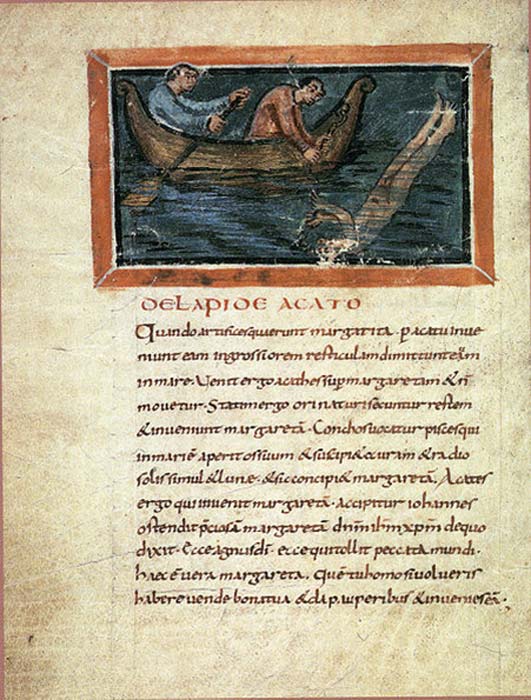 DE LAPIDE ACATO
Quando artifices querunt margarita. p acatu inve
niunt eam ingrossiorem resticulam dimittunt eam
in mare. Venit ergo acathes sup margaretam & ñ
movetur. Statim ergo orinaturi secuntur restem
& inveniunt margaretā. Conchos vocatur pisces qui
in mari ē aperit os suum & suscipi& curam & radio
solis simul & lunae. & sic concipi& margaretā. Acates
ergo qui invenit margaretā. accipitur iohannes
ostendit p̄ciosā margaretā dn̄m ih̄m xp̄m de quo
dixit. Ecce agnus dī. ecce qui tollit peccata mundi.
haec ē vera margareta. Quē tu homo si volueris
habere vende bona tua & da pauperibus & invenies eā.